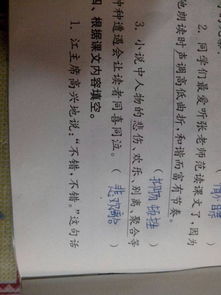 2. 同学们最爱听张老师范读课文了,因为
他朗读时声调高低曲折,和谐而富有节奏。
( )
3. 小说中人物的悲伤、欢乐、别离、聚合等
种种遭遇会让读者同喜同泣。( )
四、根据课文内容填空。
1. 江主席高兴地说:“不错,不错。”这句话